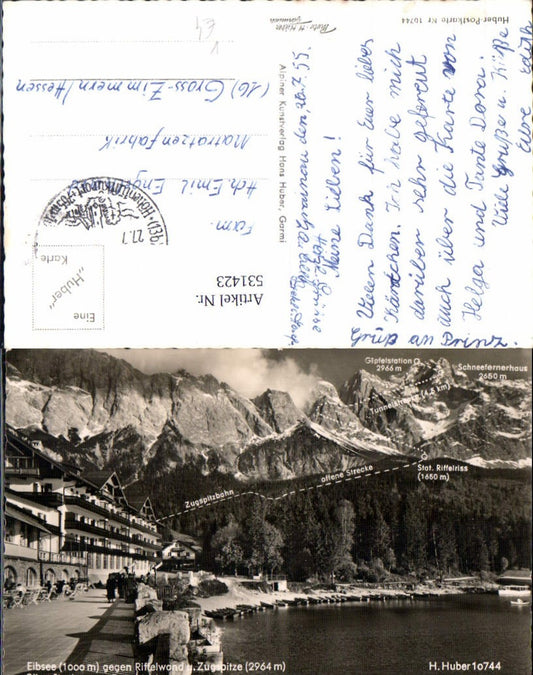 Huber-Postkarte Nr. 10744
Alpiner Kunstverlag Hans Huber, Garmi
Grainau, den 26.7.55.
Meine Lieben!
Vielen Dank für Euer liebes
Kärtchen. Ich habe mich
darüber sehr gefreut
auch über die Karte von
Helga und Tante Dora.
Viele Grüße u. Küße
Eure Edith
Herzl. Grüsse
Fam.
Hch. Emil Eng
Matratzenfabrik
(16) Gross-Zimmern/Hessen
27.7
Eine
„Huber"
Karte
Artikel Nr.
531423
Gipfelstation
2966 m
Schneefernerhaus
2650 m
Tunnelstrecke (4,5 km)
Stat. Riffelriss
(1650 m)
offene Strecke
Zugspitzbahn
Eibsee (1000 m) gegen Riffelwand u. Zugspitze (2964 m)
H. Huber 10744